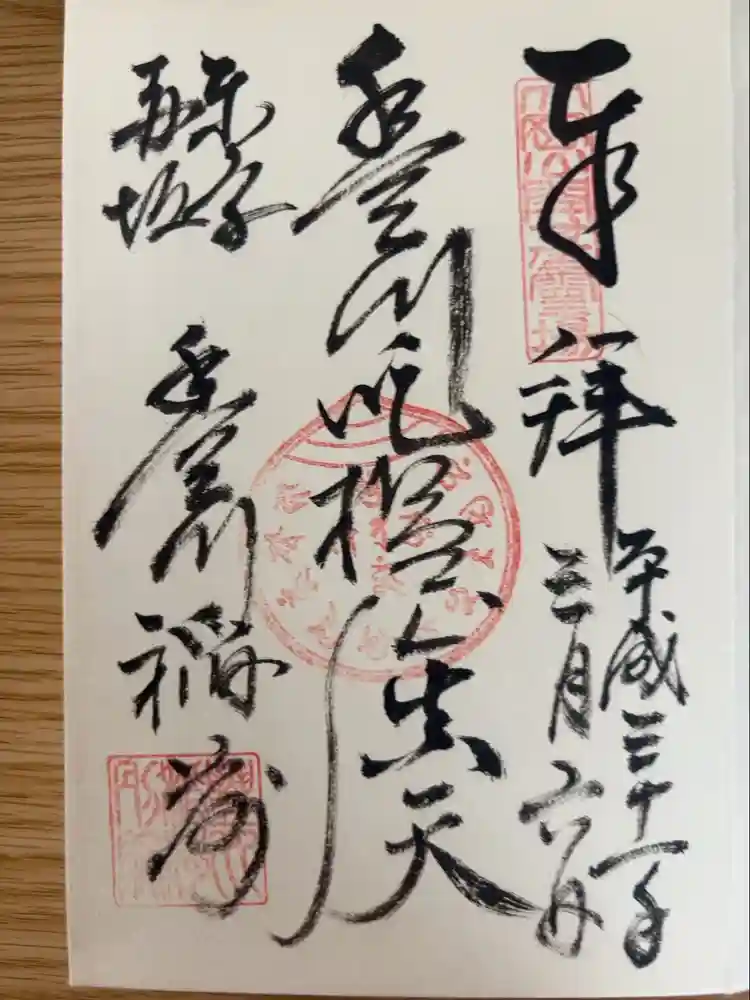 奉拝
平成三十一年
三月六日
豊川吒枳尼眞天
東京
赤坂
豊川稲荷